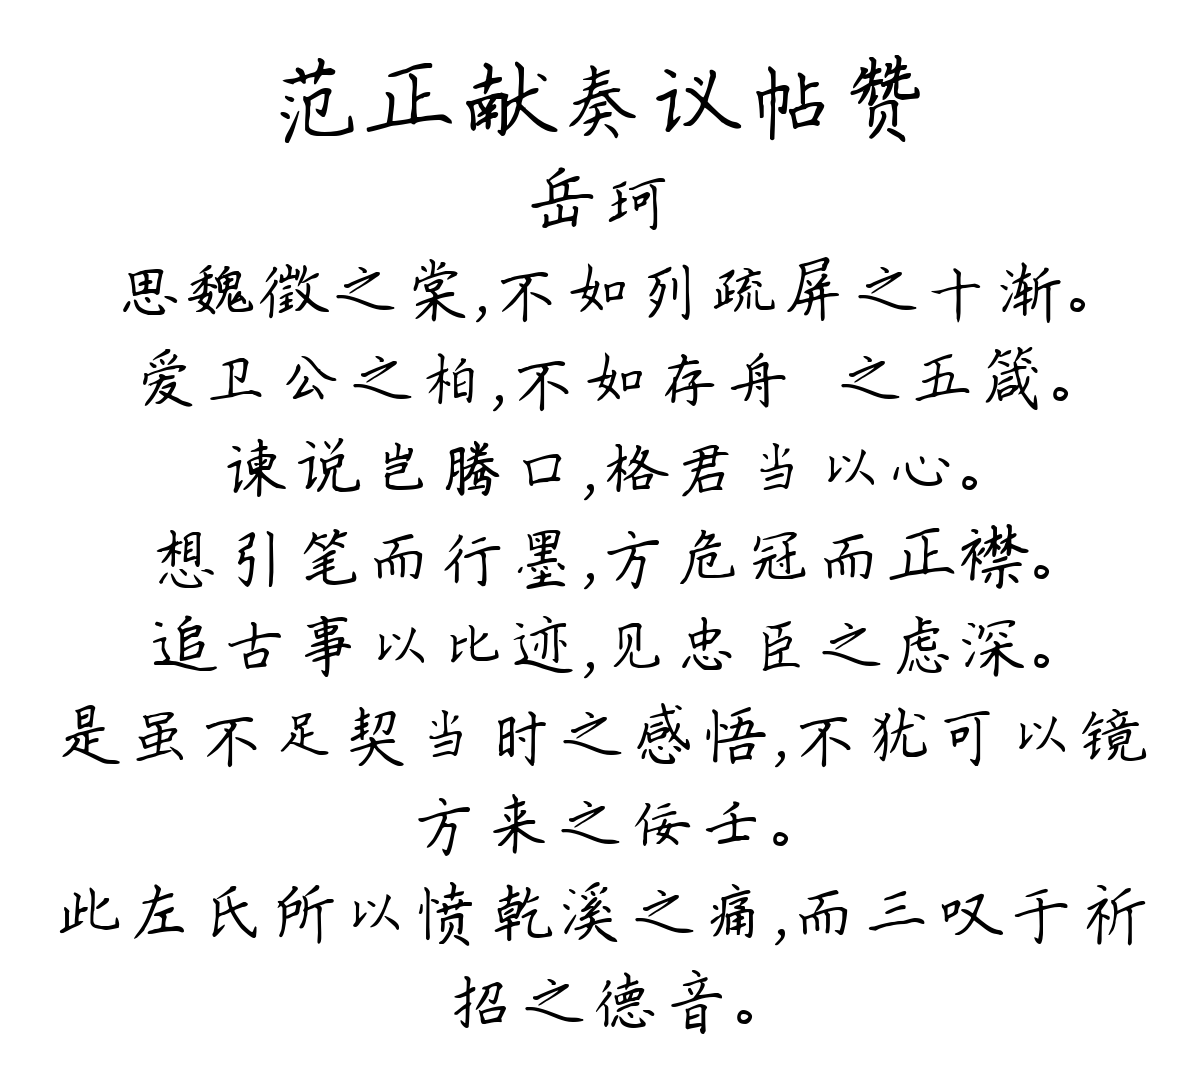 范正献奏议帖赞
岳珂
思魏徵之棠,不如列疏屏之十渐。
爱卫公之柏,不如存舟 之五箴。
谏说岂腾口,格君当以心。
想引笔而行墨,方危冠而正襟。
追古事以比迹,见忠臣之虑深。
是虽不足契当时之感悟,不犹可以镜
方来之佞壬。
此左氏所以愤乾溪之痛,而三叹于祈
招之德音。